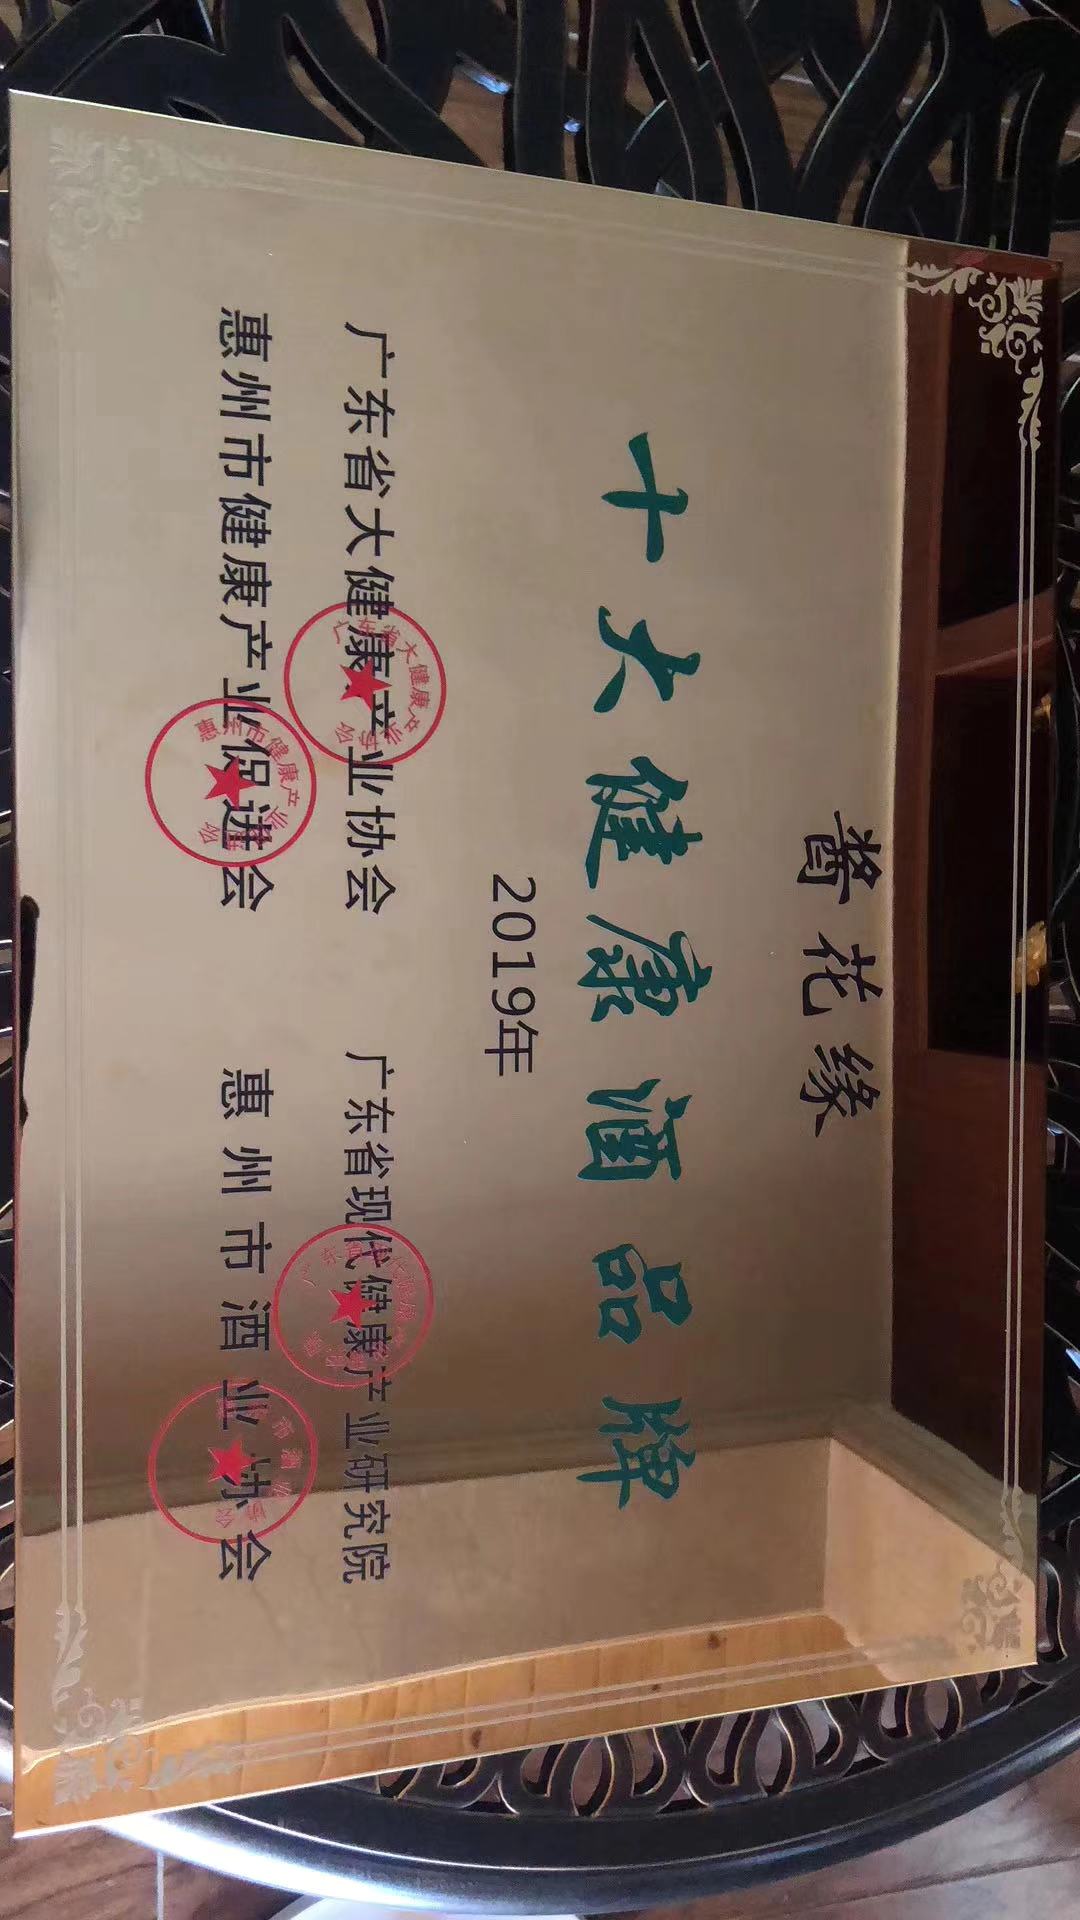 酱花缘
十大健康酒品牌
2019年
广东省大健康产业协会 广东省现代健康产业研究院
惠州市健康产业促进会 惠州市酒业协会